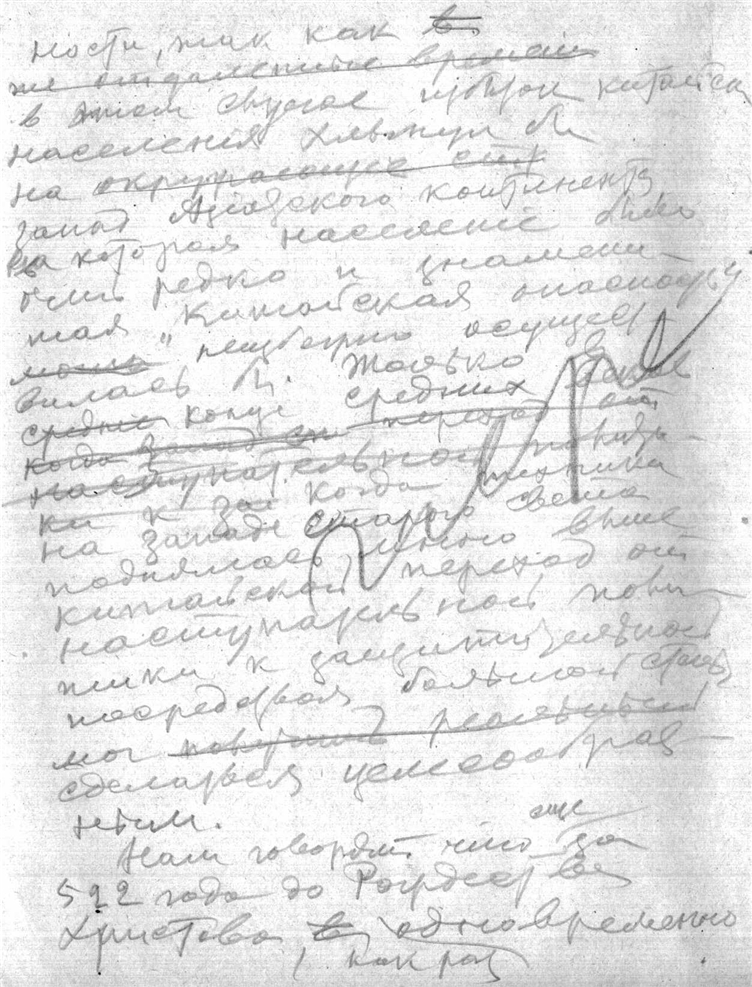 ности, так как в
же отдаленные времена
в этом случае избыток китайск
населения хлынул бы
на окружающие его
запад Азиатского континента
на котором население было
очень редко и знамени-
тая "Китайская опасность
неизбежно осущест
вилась бы. Только в
средние конце средних веков
когда запад переход от
наступательной полити-
ки к за когда техника
на западе старого света
поднялась много выше
китайской переход от
наступательной поли-
тики к защитительной
посредством большой стены
мог получить реальный
сделаться целесообраз-
ным.
Нам говорят что еще за
522 года до Рождества
Христова в одновременно
как раз